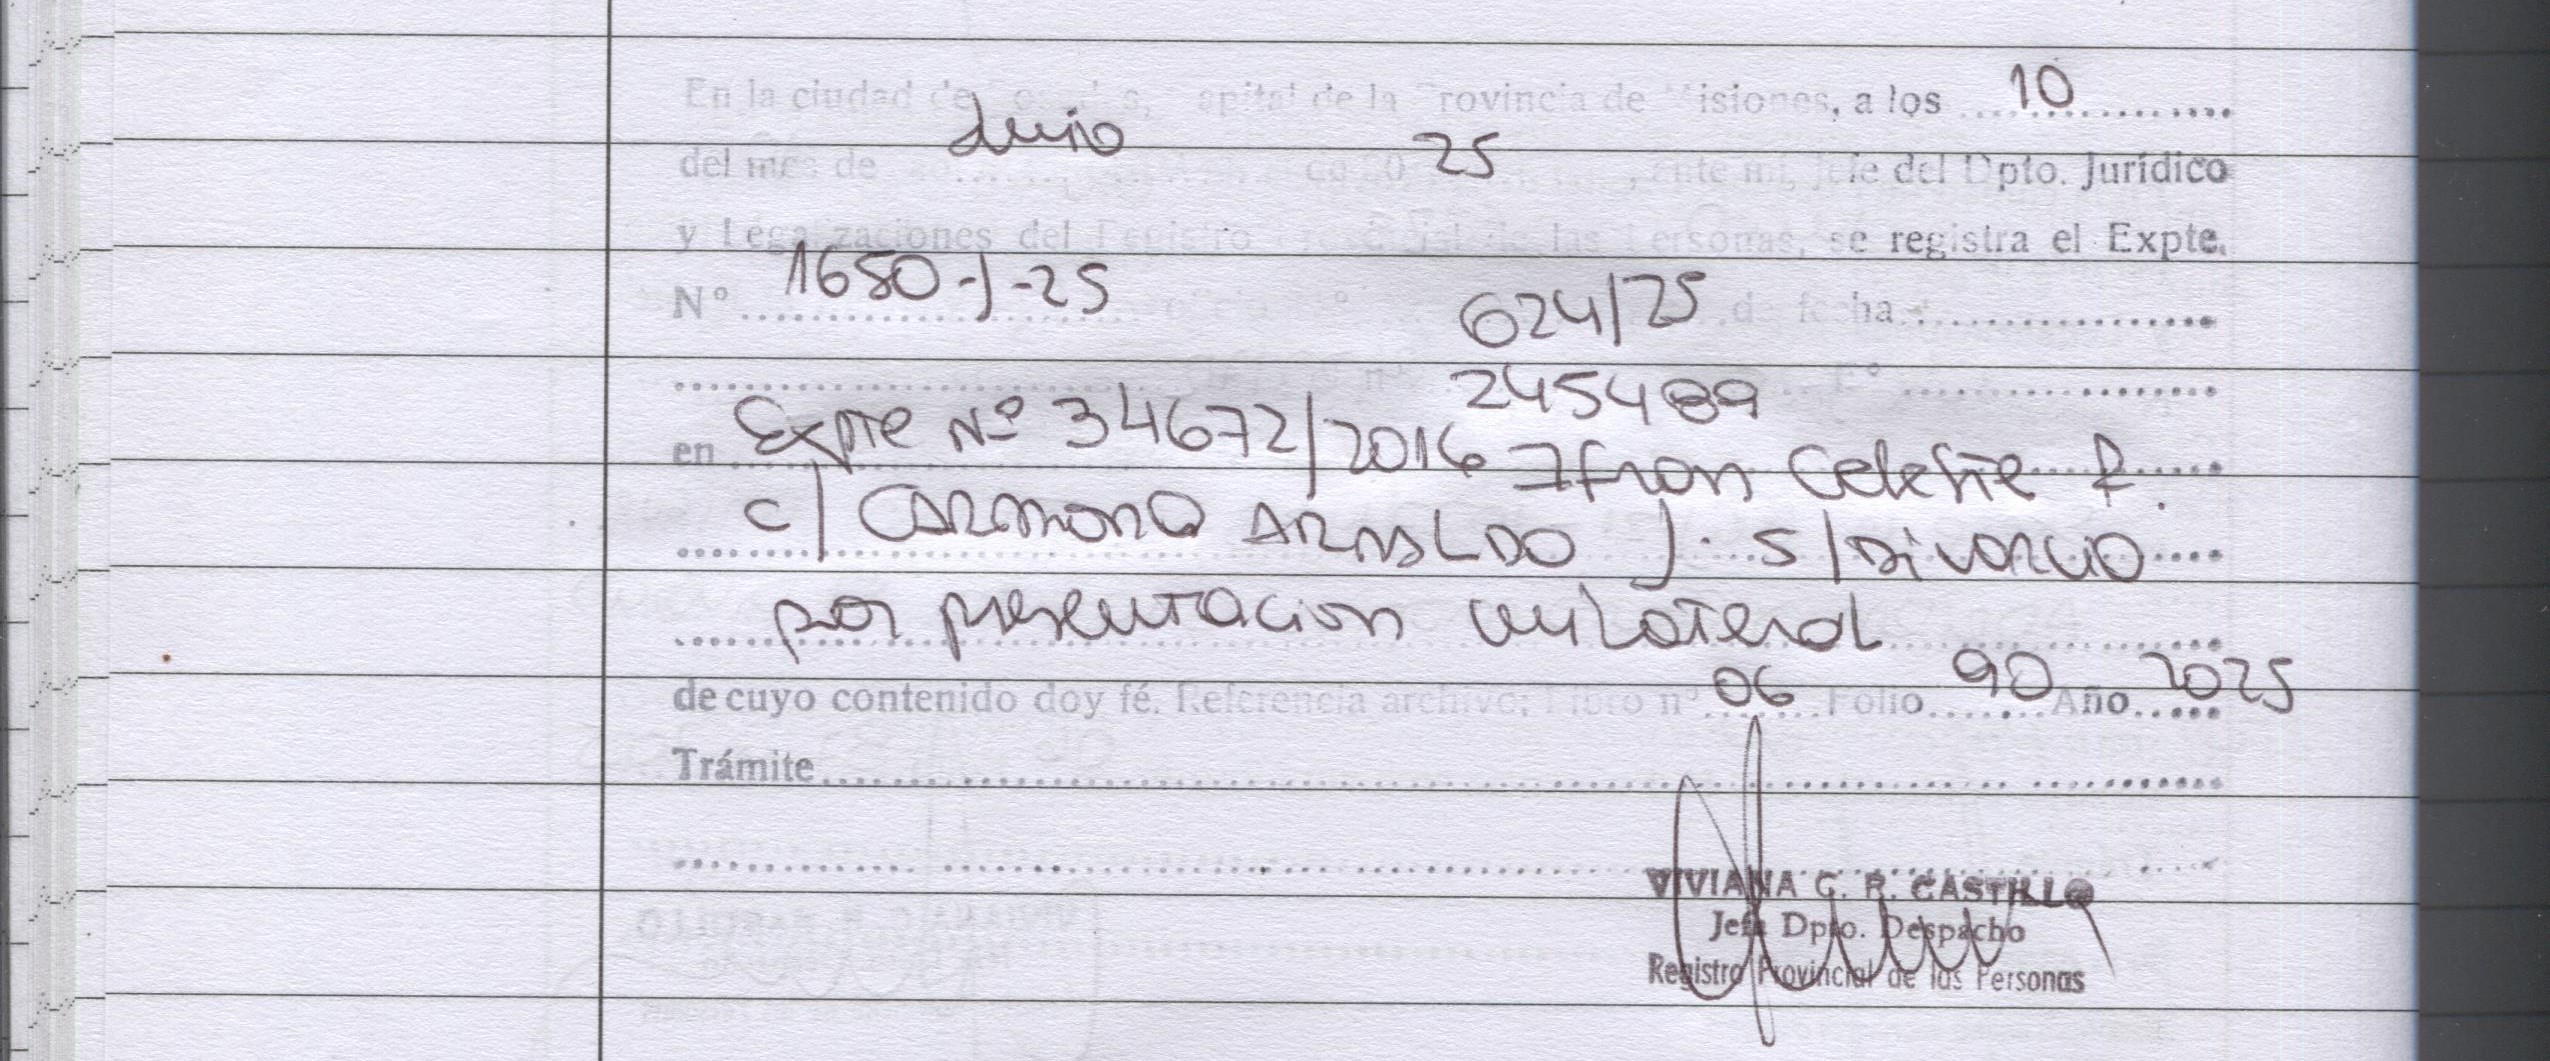 En la ciudad de Posadas, Capital de la Provincia de Misiones, a los 10
del mes de Junio de 20 25, ante mi, Jefe del Dpto. Jurídico
y Legalizaciones del Registro Provincial de las Personas, se registra el Expte.
Nº 1680-J-25 oficio nº 624/25 de fecha
245489
en Expte Nº 34672/2016 Ifran Celeste R.
c/ CARMONA ARNALDO J. S/DIVORCIO
por presentacion unilateral
de cuyo contenido doy fé. Referencia archivo: Libro nº 06 Folio 90 Año 2025
Trámite
VIVIANA G. R. CASTILLO
Jefa Dpto. Despacho
Registro Provincial de las Personas